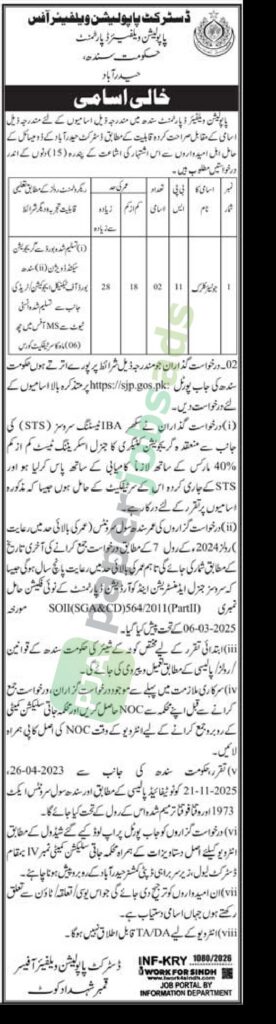 ڈسٹرکٹ پاپولیشن ویلفیئر آفس
پاپولیشن ویلفیئر ڈپارٹمنٹ
حکومت سندھ،
حیدرآباد
خالی اسامی
پاپولیشن ویلفیئر ڈپارٹمنٹ سندھ میں مندرجہ ذیل اسامیوں کے لئے مندرجہ ذیل
اسامی کے مقابل صراحت کردہ قابلیت کے مطابق ڈسٹرکٹ حیدرآباد کے ڈومیسائل کے
حامل اہل امیدواروں سے اس اشتہار کی اشاعت کے پندرہ (15) دنوں کے اندر
درخواستیں مطلوب ہیں۔
نمبر شمار | اسامی کا نام | بی پی ایس | تعداد اسامی | عمر کی حد کم از کم | زیادہ سے زیادہ | ریکروٹمنٹ رولز کے مطابق تعلیمی قابلیت تجربہ و دیگر شرائط
1 | جونیئر کلرک | 11 | 02 | 18 | 28 | (i) تسلیم شدہ بورڈ سے گریجویشن سیکنڈ ڈویژن (ii) سندھ بورڈ آف ٹیکنیکل ایجوکیشن / ٹریڈ کی جانب سے تسلیم شدہ انسٹی ٹیوٹ سے MS آفس میں چھ (06) ماہ کا سرٹیفکیٹ کورس
02۔ درخواست گذاران جو مندرجہ ذیل شرائط پر پورے اترتے ہوں حکومت
سندھ کی جاب پورٹل https://sjp.gos.pk پر متذکرہ بالا اسامیوں کے
لئے درخواست دیں۔
(i) درخواست گذاران نے سکھر IBA ٹیسٹنگ سروسز (STS) کی
جانب سے منعقدہ گریجویشن کیٹیگری کا جنرل اسکریننگ ٹیسٹ کم از کم
40% مارکس کے ساتھ لازماً کامیابی کے ساتھ پاس کرلیا ہو اور
STS کے جاری کردہ اس کے سرٹیفکیٹ کے حامل ہوں جیسا کہ مذکورہ
اسامیوں پر تقرر کے لئے درکار ہے۔
(ii) درخواست گزاروں کی عمر سندھ سول سرونٹس (عمر کی بالائی حد میں رعایت
) رولز 2024ء کے رول 7 کے مطابق درخواست جمع کرانے کی آخری تاریخ
پر شمار کی جائے گی تاہم عمر کی بالائی حد میں رعایت پانچ سال ہوگی جیسا
کہ سروسز جنرل ایڈمنسٹریشن اینڈ کوآرڈینیشن ڈپارٹمنٹ کے نوٹی فکیشن حامل
نمبری SOII(SGA&CD)564/2011(PartII) مورخہ
06-03-2025 کے تحت پیش کیا گیا۔
iii) ابتدائی تقرر کے لئے مختص کوٹہ کے شیئر کی حکومت سندھ کے قوانین
/ رولز / پالیسی کے مطابق تعمیل و پیروی کی جائے گی۔
iv) سرکاری ملازمت میں پہلے سے موجود درخواست گذاران، درخواست جمع
کرانے سے قبل اپنے محکمہ سے NOC حاصل کریں اور محکمہ جاتی سلیکشن کمیٹی
کے روبرو جمع کرانے کے لئے انٹرویو کے وقت NOC کی اصل کاپی ہمراہ
لائیں۔
v) تقرر حکومت سندھ کی جانب سے 26-04-2023 اور
21-11-2025 کو نوٹیفائیڈ پالیسی کے مطابق اور سندھ سول سرونٹس ایکٹ
1973 اور وقتاً فوقتاً ترمیم شدہ اس کے رول کے تحت کیا جائے گا۔
vi) درخواست گزاروں کو جاب پورٹل پر اپ لوڈ کیے گئے شیڈول کے مطابق
انٹرویو کیلئے اصل دستاویزات کے ہمراہ محکمہ جاتی سلیکشن کمیٹی نمبر IV بمقام
ڈسٹرکٹ لیول، زیر سربراہی ڈپٹی کمشنر حیدرآباد کے روبرو پیش ہونا چاہئے۔
vii) ان امیدواروں کو ترجیح دی جائے گی جو اس یوسی / تعلقہ / ٹاؤن سے تعلق
رکھتے ہوں جہاں اسامی دستیاب ہے۔
viii) انٹرویو کے لئے TA/DA قابل اطلاق نہیں ہوگا۔
ڈسٹرکٹ پاپولیشن ویلفیئر آفیسر
قمبر شہدادکوٹ
INF-KRY 1080/2026
I WORK FOR SINDH
www.iwork4sindh.com
JOB PORTAL BY
INFORMATION DEPARTMENT
paperjobsads